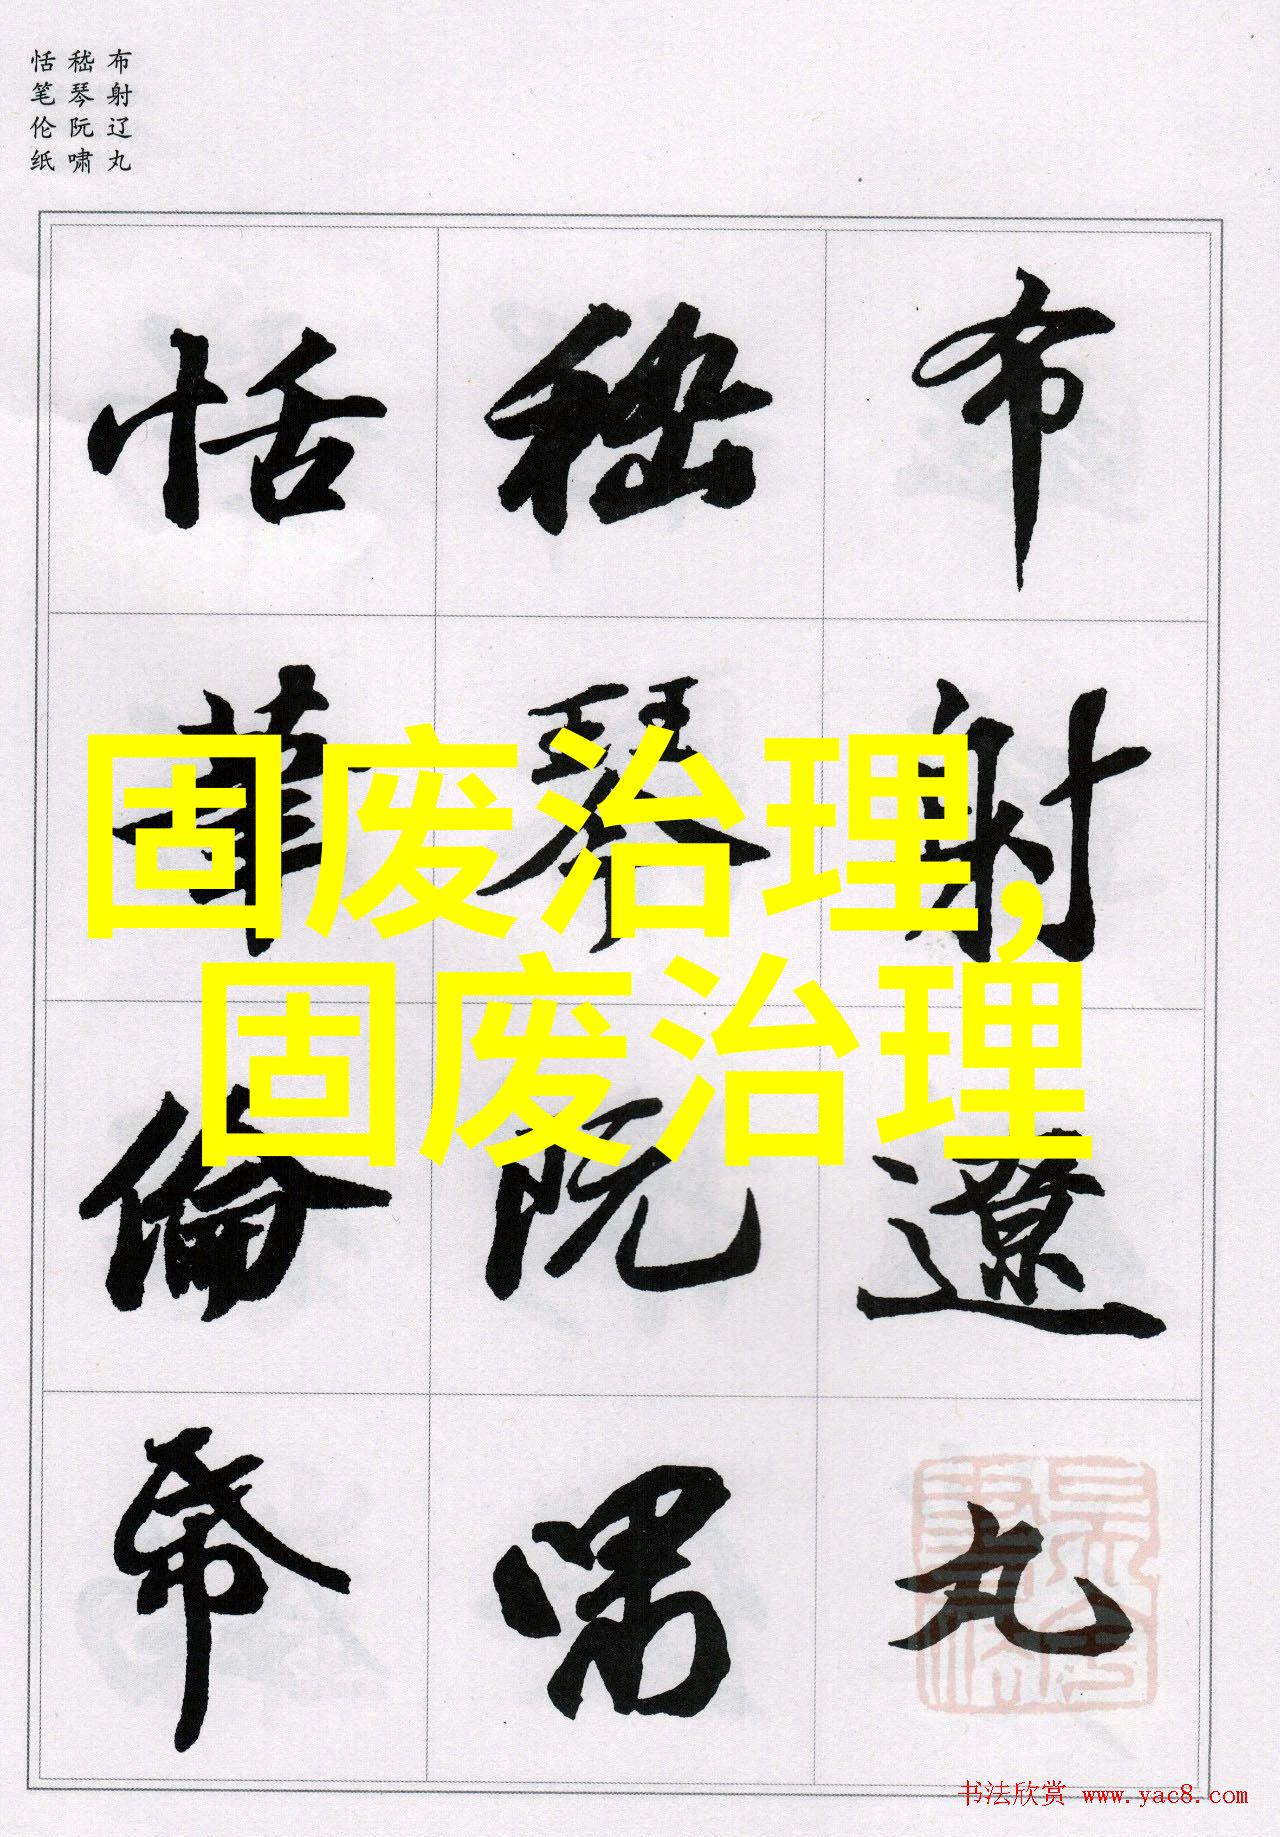 布射辽丸
嵇琴阮啸
恬笔伦纸
布射遼丸
嵇琴阮嘯
恬筆倫帋
固废治理,
固废治理
书法欣赏 www.yac8.com